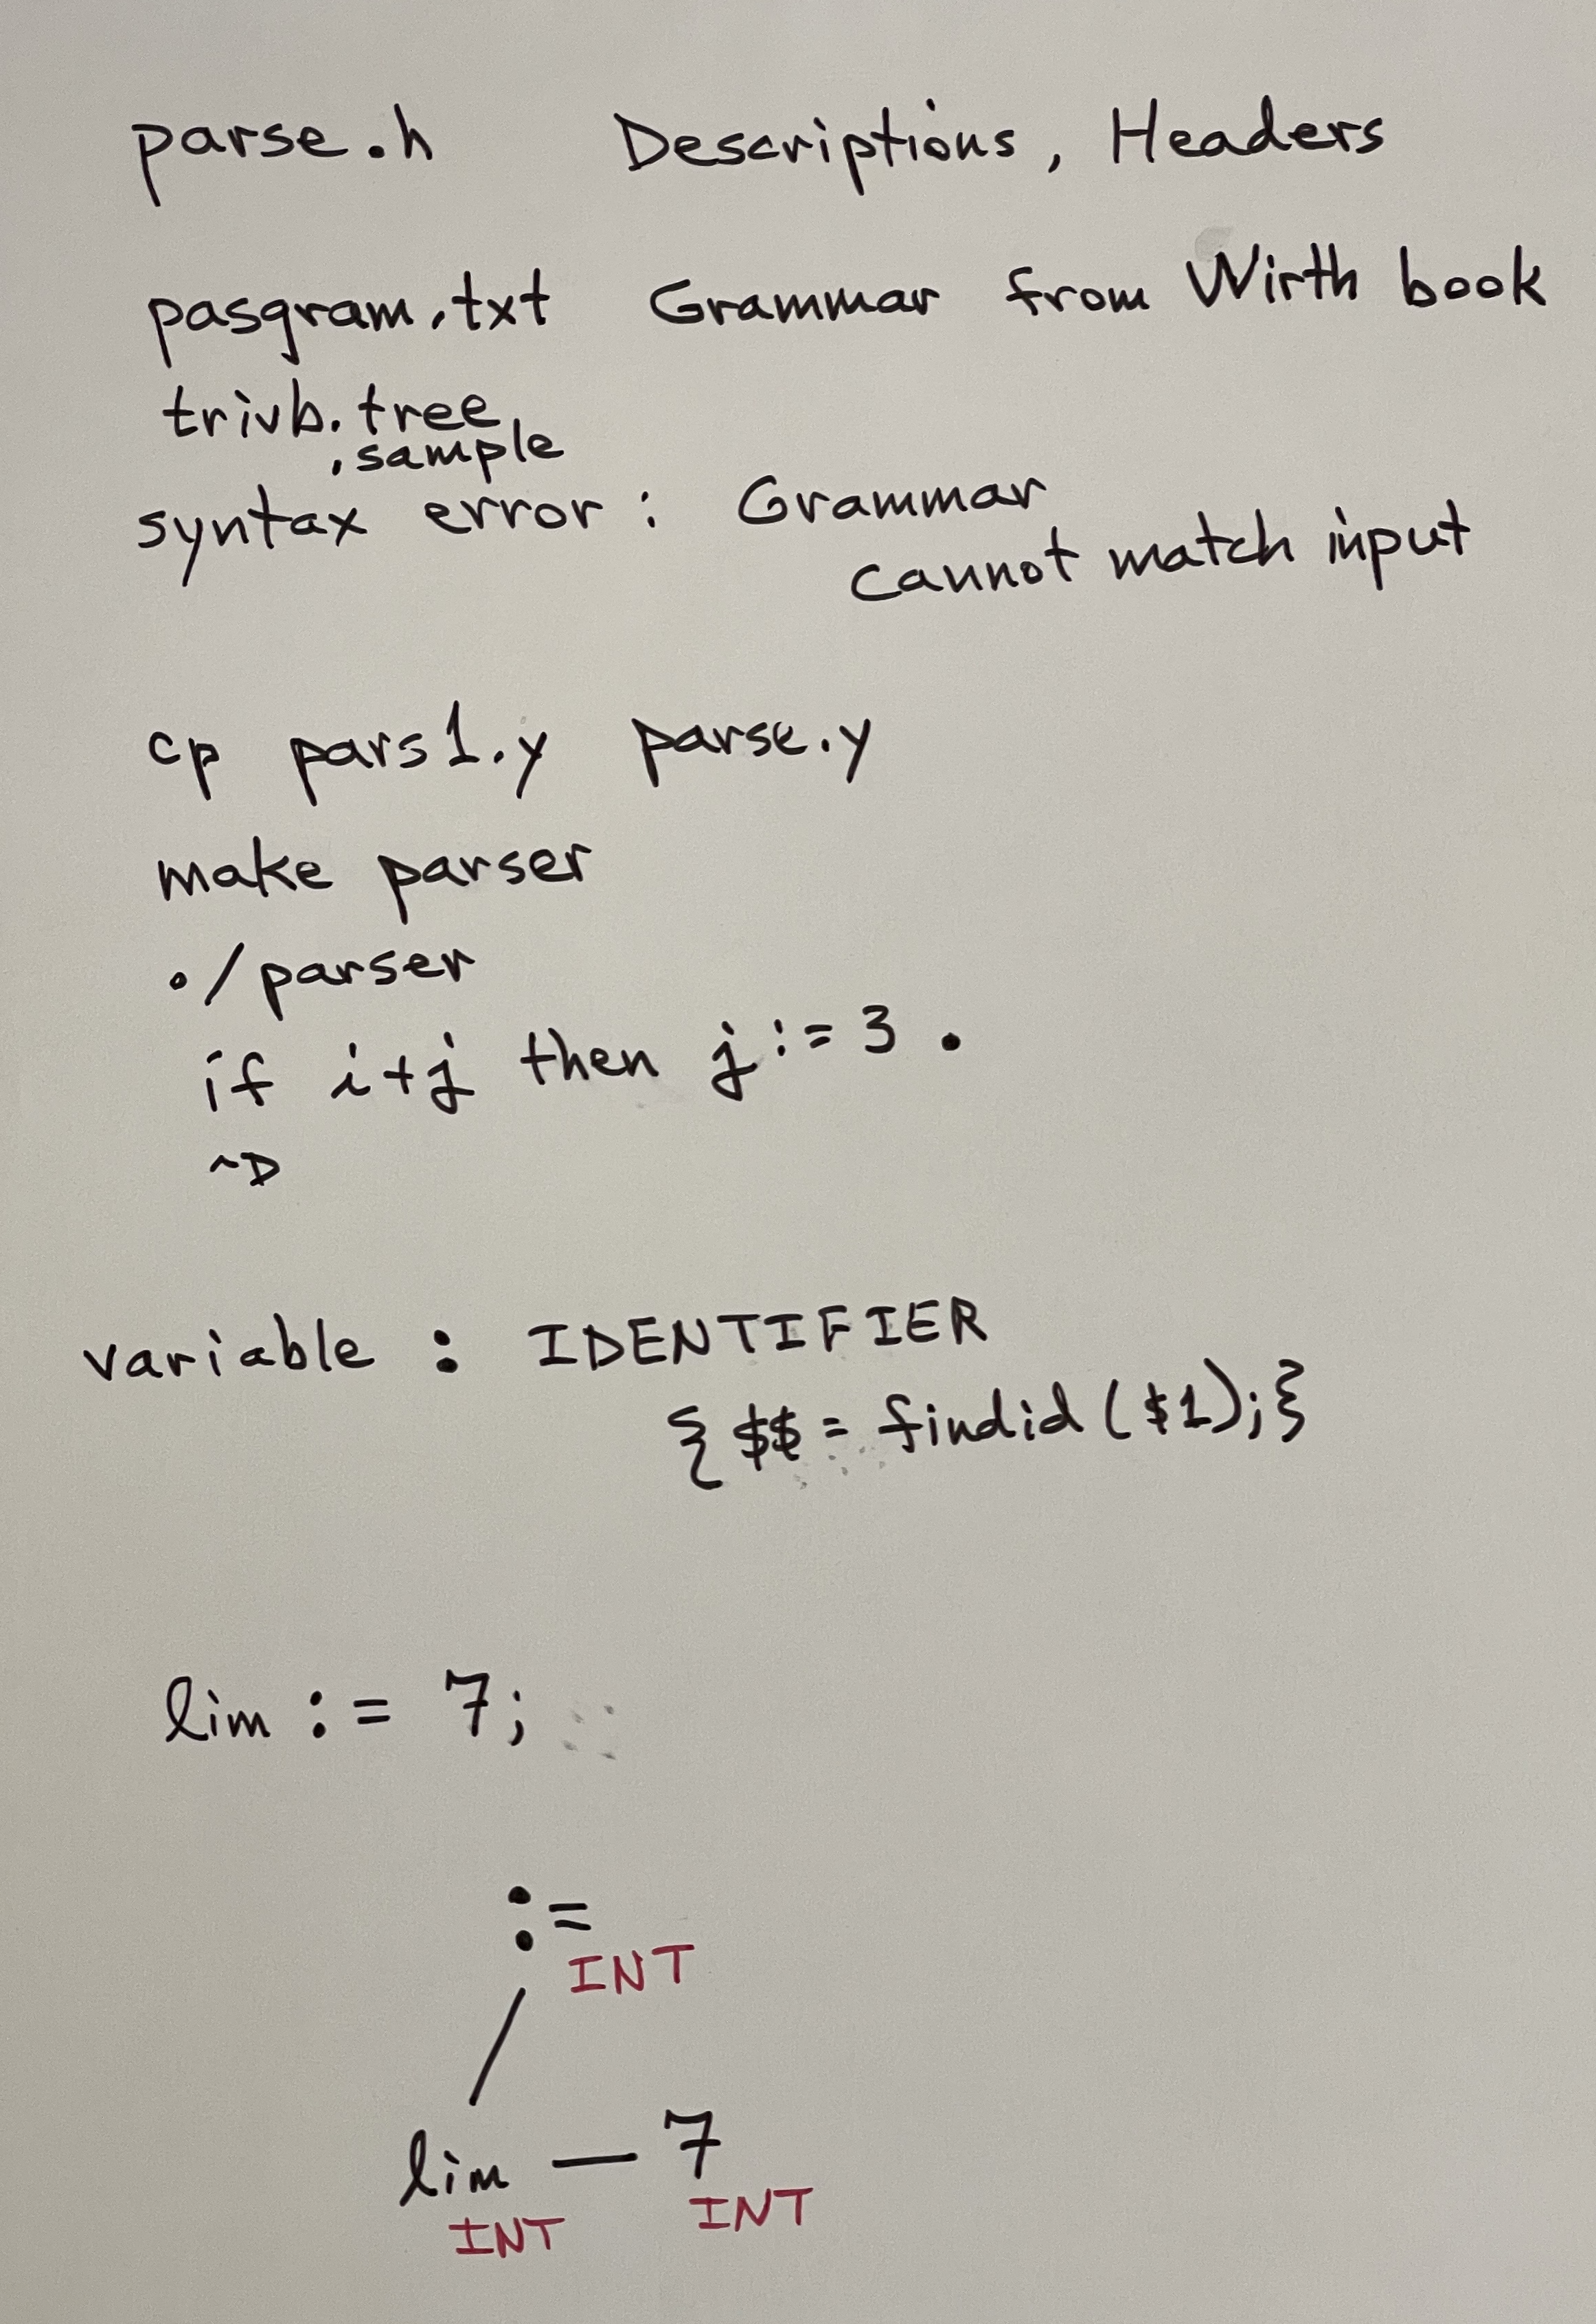 parse.h Descriptions, Headers
pasgram.txt Grammar from Wirth book
trivb.tree
.sample
syntax error: Grammar
cannot match input
cp pars1.y parse.y
make parser
./parser
if i+j then j := 3 .
^D
variable : IDENTIFIER
{$$ = findid($1);}
lim := 7;
:=
INT
lim — 7
INT INT